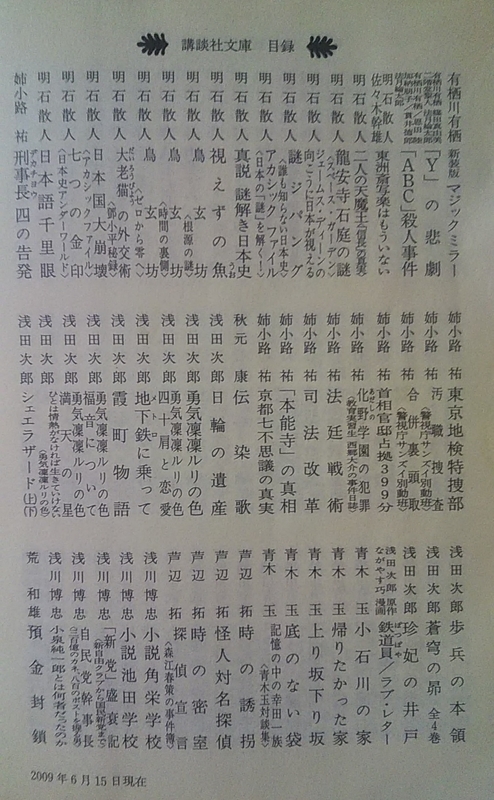 講談社文庫 目録
有栖川有栖 新装版 マジックミラー
「Y」の悲劇
「ABC」殺人事件
佐々木幹雄 東洲斎写楽はもういない
明石散人
明石散人 二人の天魔王〈「信長」の真実〉
明石散人 龍安寺石庭の謎〈スペース・ガーデン〉
明石散人 ジェームス・ディーンの向こうに日本が視える
明石散人 謎ジパング〈誰も知らない日本史〉
明石散人 アカシックファイル〈日本の「謎」を解く!〉
明石散人 真説 謎解き日本史
明石散人 視えずの魚
明石散人 鳥玄坊〈根源の謎〉
明石散人 鳥玄坊〈時間の裏側〉
明石散人 鳥玄坊〈ゼロから零へ〉
明石散人 大老猫の外交術〈鄧小平秘録〉
明石散人 日本国大崩壊〈アカシックファイル〉
明石散人 七つの金印〈日本史アンダーワールド〉
明石散人 日本語千里眼
姉小路祐 刑事長 四の告発
姉小路祐 東京地検特捜部
姉小路祐 汚職捜査〈警視庁サンズイ別動班〉
姉小路祐 合併裏頭取〈警視庁サンズイ別動班〉
姉小路祐 首相官邸占拠399分
姉小路祐 化野学園の犯罪〈教育実習生 西郷大介の事件日誌〉
姉小路祐 法廷戦術
姉小路祐 司法改革
姉小路祐 「本能寺」の真相
姉小路祐 京都七不思議の真実
秋元康 伝染歌
浅田次郎 日輪の遺産
浅田次郎 勇気凜凜ルリの色
浅田次郎 四十肩と恋愛〈勇気凜凜ルリの色〉
浅田次郎 地下鉄に乗って
浅田次郎 霞町物語
浅田次郎 福音について〈勇気凜凜ルリの色〉
浅田次郎 満天の星〈勇気凜凜ルリの色〉
浅田次郎 ひとは情熱がなければ生きていけない〈勇気凜凜ルリの色〉
浅田次郎 シェエラザード(上)(下)
浅田次郎 歩兵の本領
浅田次郎 蒼穹の昴 全4巻
浅田次郎 珍妃の井戸
浅田次郎 原作 ながやす巧 漫画 鉄道員/ラブ・レター
青木玉 小石川の家
青木玉 帰りたかった家
青木玉 上り坂下り坂
青木玉 底のない袋
青木玉 記憶の中の幸田一族〈青木玉対談集〉
芦辺拓 時の誘拐
芦辺拓 怪人対名探偵
芦辺拓 時の密室
芦辺拓 探偵宣言〈森江春策の事件簿〉
浅川博忠 小説角栄学校
浅川博忠 小説池田学校
浅川博忠 「新党」盛衰記〈新自由クラブから国民新党まで〉
浅川博忠 自民党幹事長〈三百億のカネ、八百のポストを握る男〉
浅川博忠 小泉純一郎とは何者だったのか
荒和雄 預金封鎖
2009年6月15日現在